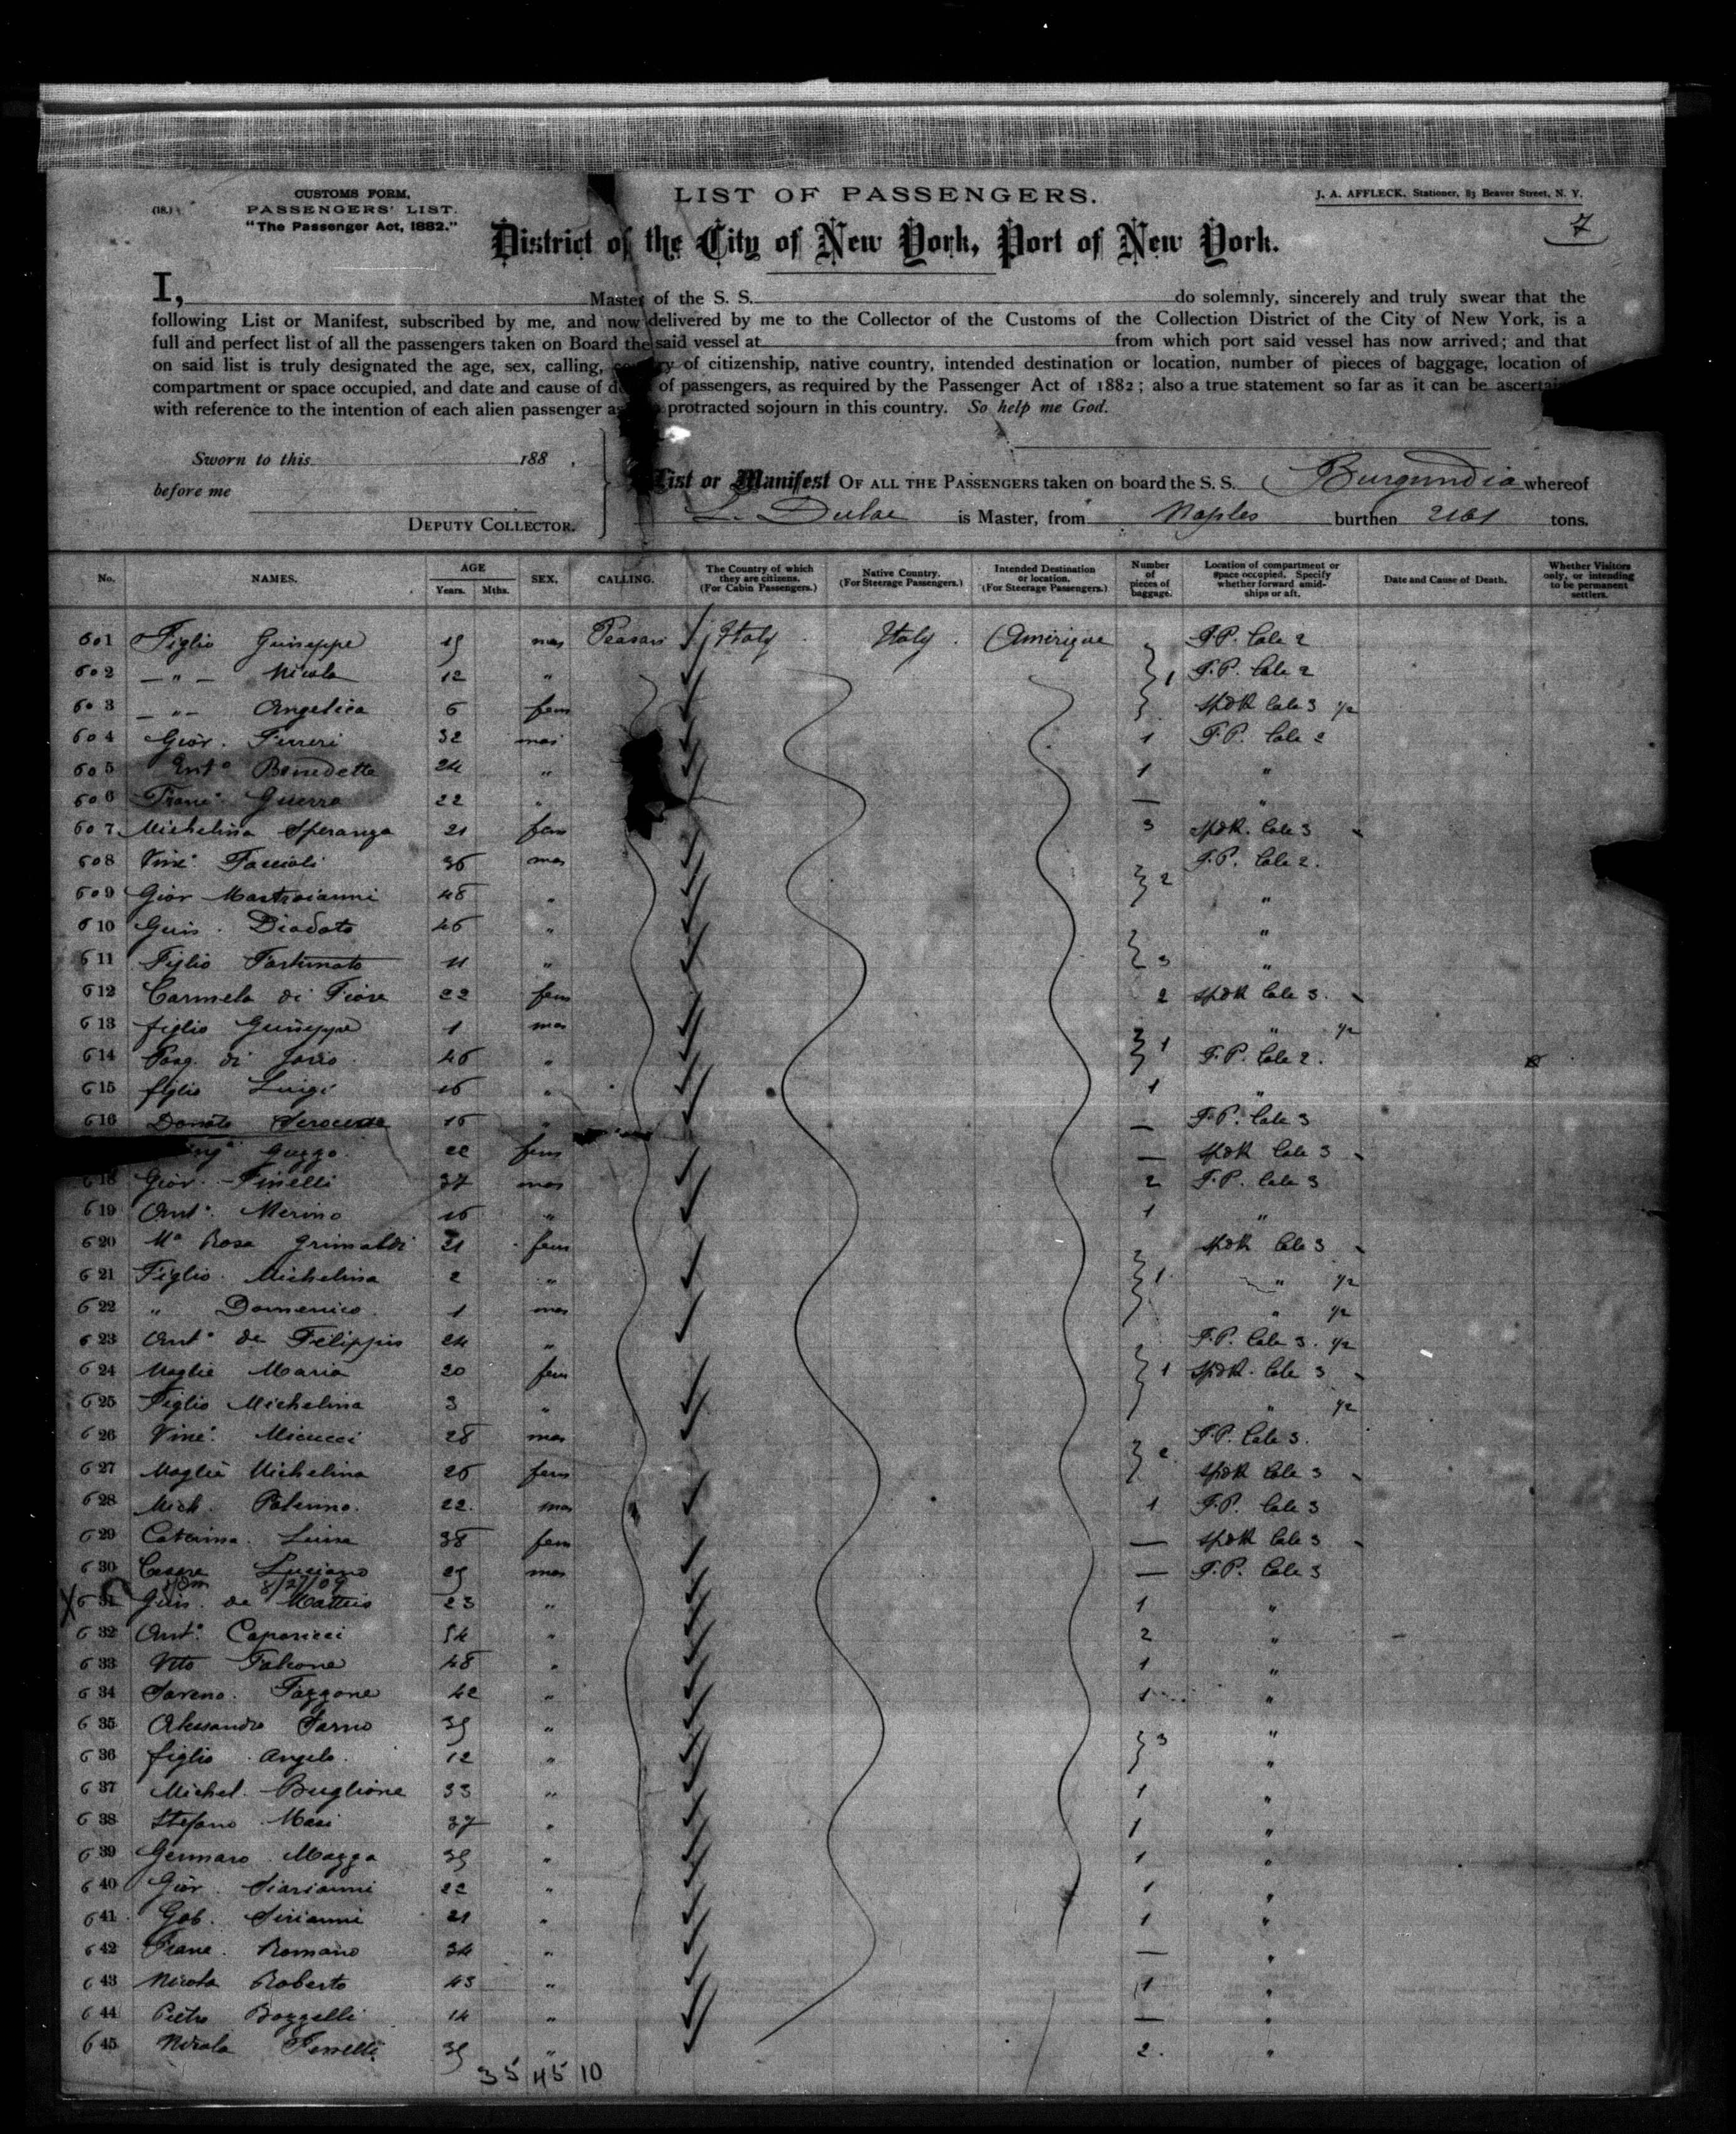 CUSTOMS FORM,
PASSENGERS' LIST.
"The Passenger Act, 1882."
(18.)
LIST OF PASSENGERS.
J. A. AFFLECK, Stationer, 83 Beaver Street, N. Y.
7
District of the City of New York, Port of New York.
I, Master of the S. S. do solemnly, sincerely and truly swear that the
following List or Manifest, subscribed by me, and now delivered by me to the Collector of the Customs of the Collection District of the City of New York, is a
full and perfect list of all the passengers taken on Board the said vessel at from which port said vessel has now arrived; and that
on said list is truly designated the age, sex, calling, of citizenship, native country, intended destination or location, number of pieces of baggage, location of
compartment or space occupied, and date and cause of of passengers, as required by the Passenger Act of 1882; also a true statement so far as it can be
with reference to the intention of each alien passenger protracted sojourn in this country. So help me God.
Sworn to this 188 ,
before me
DEPUTY COLLECTOR.
List or Manifest OF ALL THE PASSENGERS taken on board the S. S. Burgundia whereof
is Master, from Naples burthen tons.
No. NAMES. AGE Years. Mths. SEX. CALLING. The Country of which they are citizens. (For Cabin Passengers.) Native Country. (For Steerage Passengers.) Intended Destination or location. (For Steerage Passengers.) Number of pieces of baggage. Location of compartment or space occupied. Specify whether forward amidships or aft. Date and Cause of Death. Whether Visitors only, or intending to be permanent settlers.
601 Figlio Guiseppe mas Italy Italy Amérique F.P. Cale 2
602 — " — Nicola 12 " 1 F.P. Cale 2
603 — " — Angelica 6 fem Cale 3 1/2
604 Giov. Ferreri 32 mas 1 F.P. Cale 2
605 Ant° Benedetto 24 " 1 "
606 Franc° Guerra 22 " — "
607 Michelina Speranza 21 fem 3 Cale 3
608 Vinc° 36 mas F.P. Cale 2.
609 Giov Mastroianni 48 " 2 "
610 Guis. Diodato 46 " "
611 Figlio Fortunato 11 " 3 "
612 Carmela di Fiore 22 fem 2 Cale 3.
613 figlio Guiseppe 1 mas " 1/2
614 Pasq. di 46 " 1 F.P. Cale 2.
615 figlio Luigi 16 " 1 "
616 Donato 16 " — F.P. Cale 3
Guzzo 22 fem — Cale 3
618 Giov. Finelli 37 mas 2 F.P. Cale 3
619 Ant° Merino 16 " 1 "
620 Ma Rosa Grimaldi 21 fem Cale 3
621 Figlio Michelina 2 " 1 " 1/2
622 " Domenico 1 mas " 1/2
623 Ant° de Filippis 24 " F.P. Cale 3. 1/2
624 Moglie Maria 20 fem 1 Cale 3
625 Figlio Michelina 3 " " 1/2
626 Vinc° Micucci 28 mas F.P. Cale 3.
627 Moglie Michelina 26 fem 2 Cale 3
628 Mich. Palermo. 22. mas 1 F.P. Cale 3
629 Caterina 38 fem — Cale 3
630 Cesare Luciano mas — F.P. Cale 3
8/27/09
X 631 Guis. de Matteis 23 " 1 "
632 Ant° " 2 "
633 Vito Falcone 48 " 1 "
634 Fazzone 42 " 1 "
635 Alessandro Sarno " 3 "
636 figlio Angelo. 12 " "
637 Michel. Buglione 33 " 1 "
638 Stefano Masi 37 " 1 "
639 Gennaro Mazza " 1 "
640 Giov. 22 " 1 "
641 Gab. Sirianni 21 " 1 "
642 Franc. Romano 34 " — "
643 Nicola Roberto 43 " 1 "
644 Pietro Bozzelli 14 " — "
645 Nicola " 2. "
35 45 10